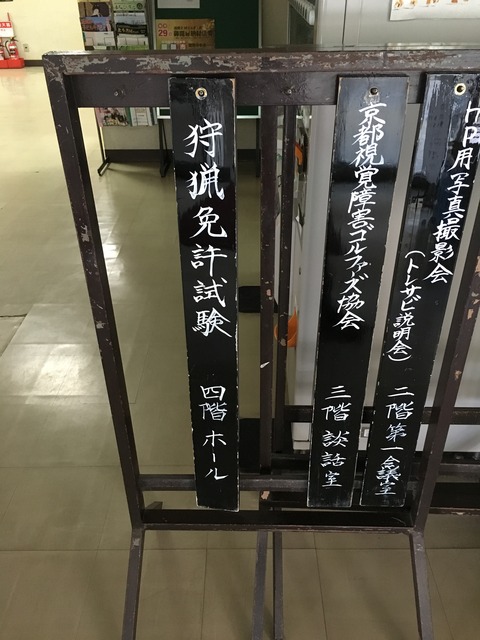 HP用写真撮影会
(トンサビ説明会)
二階第一会議室
京都視覚障害ゴルファーズ協会
三階 談話室
狩猟免許試験
四階 ホール
29